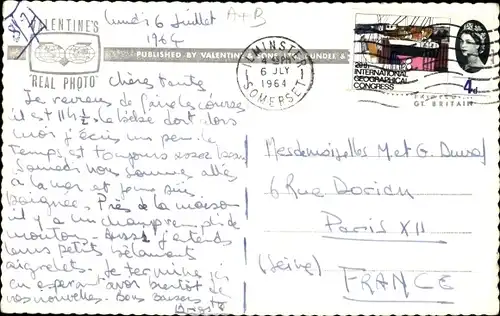 Lundi 6 Juillet A+B
1964
VALENTINE'S
"REAL PHOTO"
PUBLISHED BY VALENTINE & SONS
ILMINSTER
6 JLY
1964
SOMERSET
20th INTERNATIONAL
GEOGRAPHICAL
CONGRESS
4d
GT. BRITAIN
Chères tantes
Je reviens de faire les courses
il est 11h ½. le bébé dort alors
moi j'écris un peu. le
temps est toujours assez beau.
Samedi nous sommes allés
à la mer et je me suis
baignée. Près de la maison
il y a un champ rempli de
moutons. Aussi j'entends
leurs petits bêlements
aigrelets. Je termine ici
en espérant avoir bientôt de
vos nouvelles. Bons baisers
Mesdemoiselles M et G. Duval
6 Rue Dorian
Paris XII
(Seine)
FRANCE